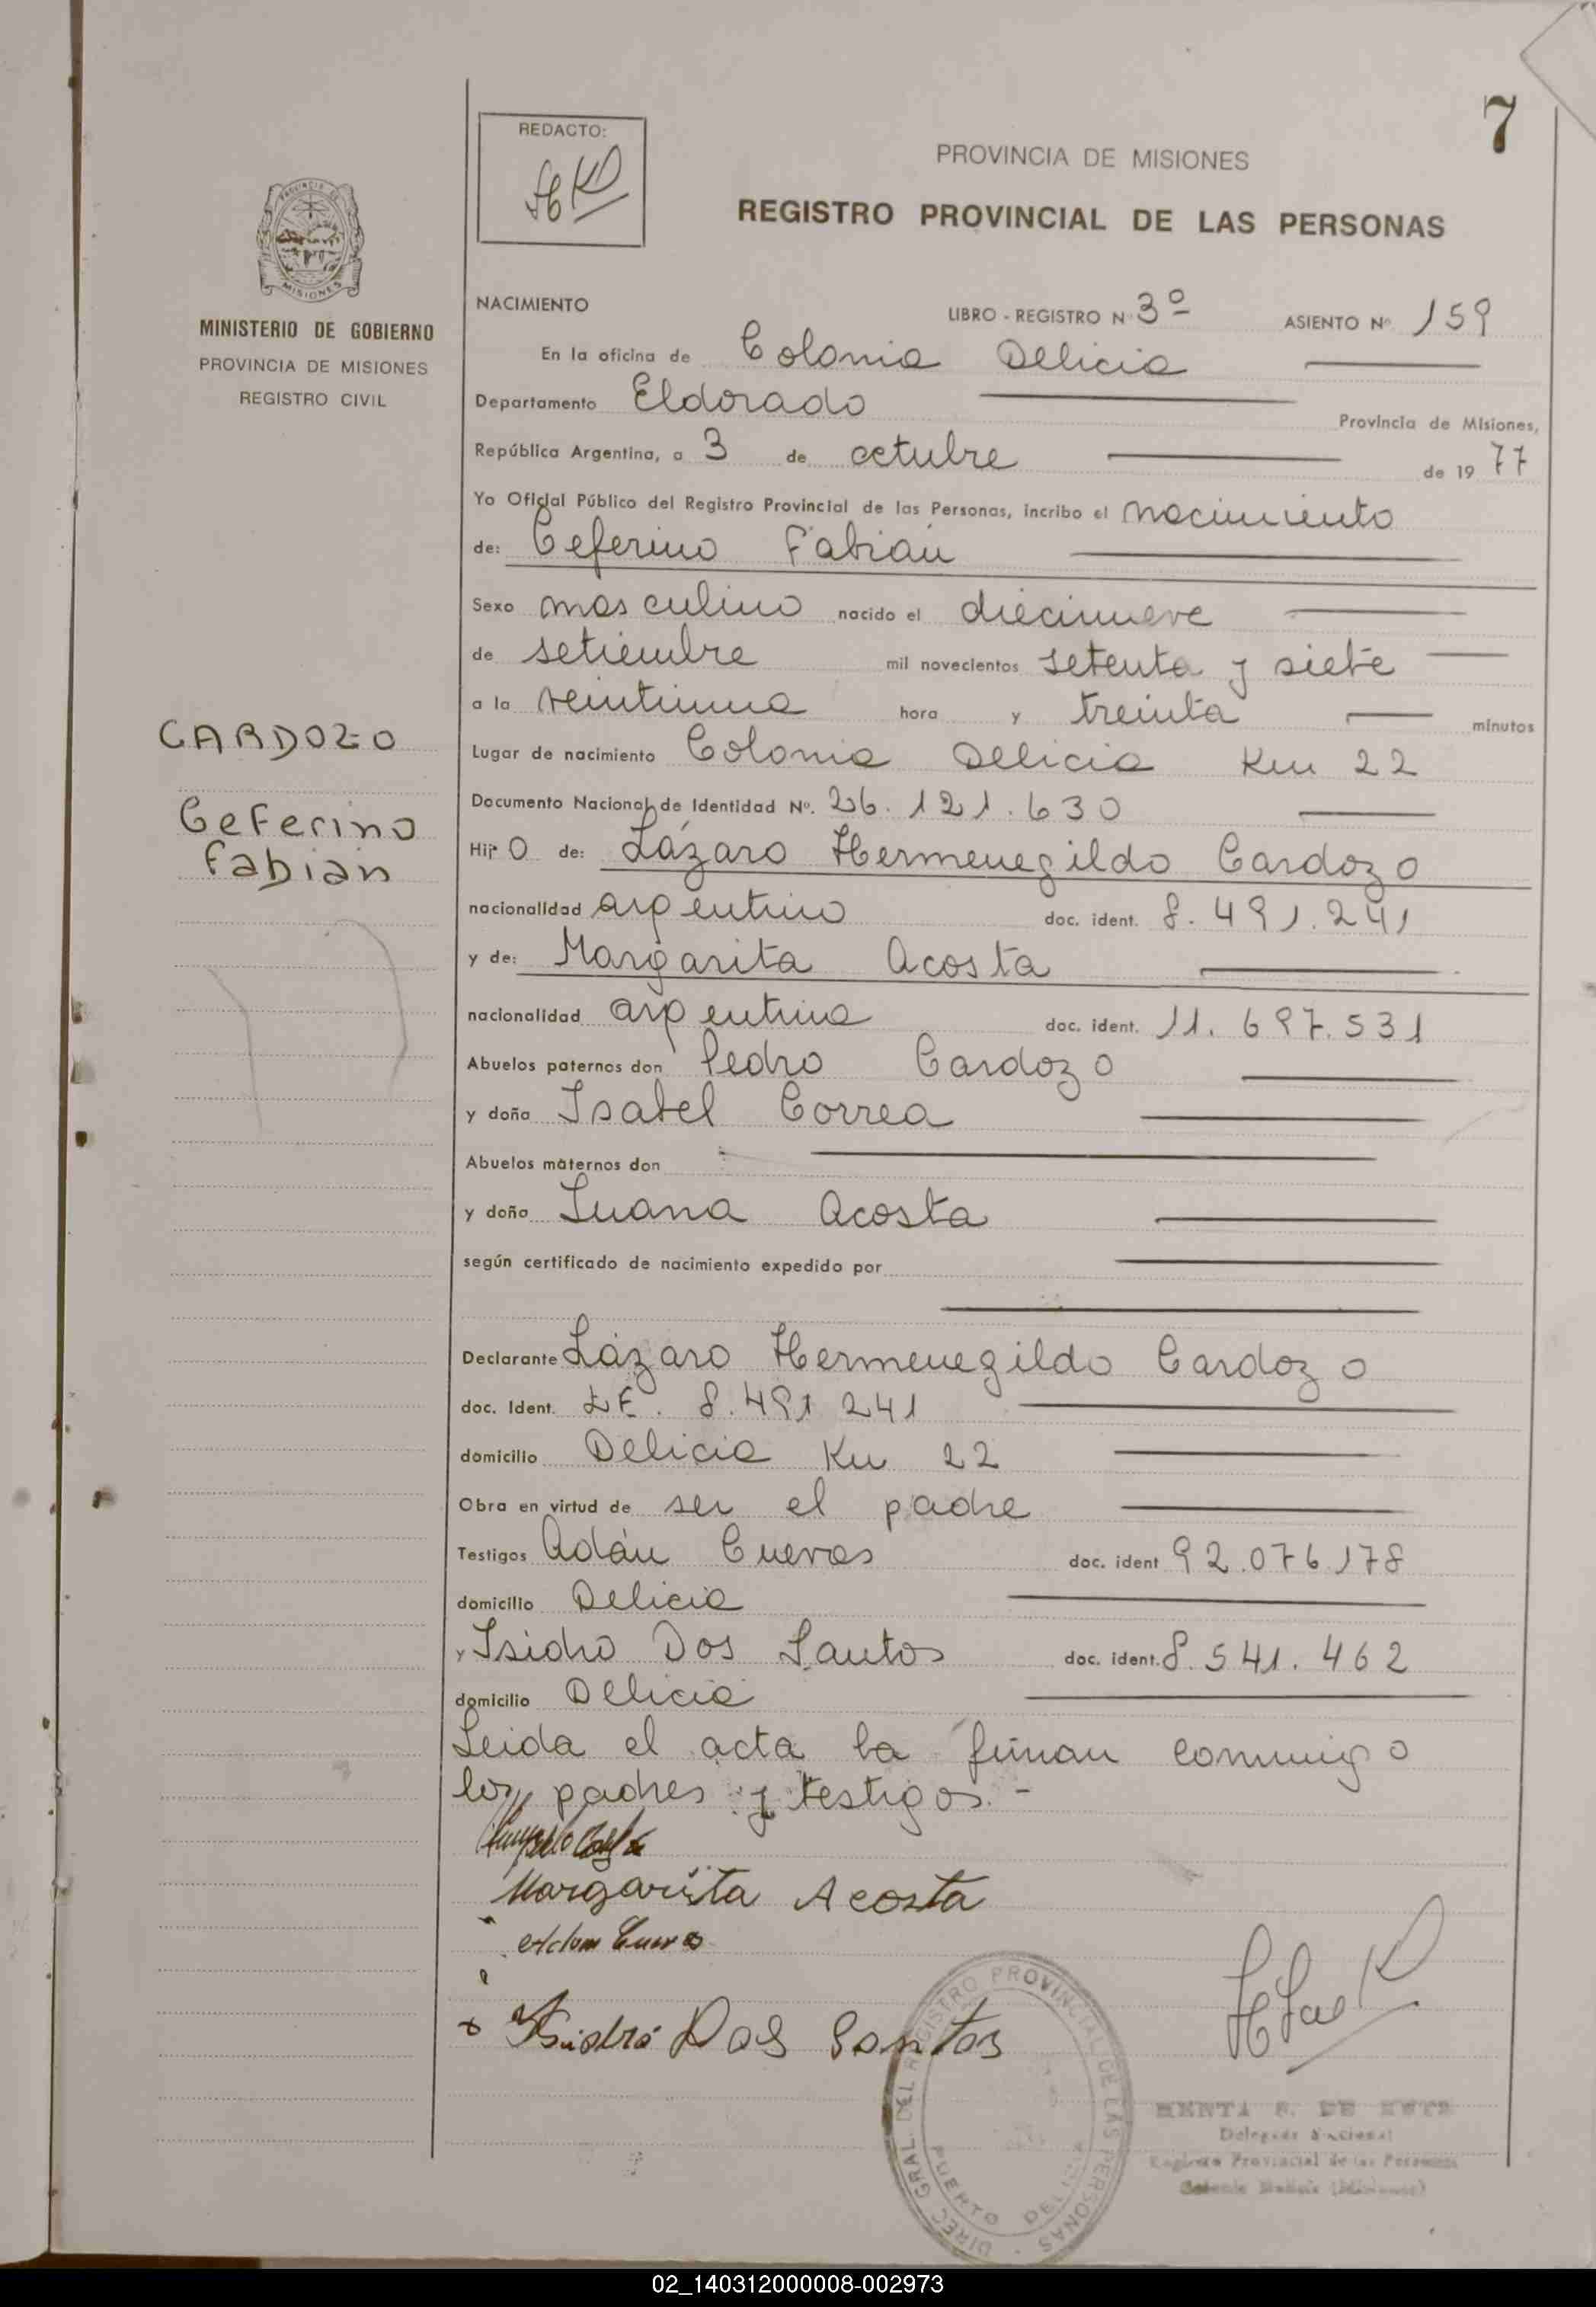 7
REDACTO:
PROVINCIA DE MISIONES
REGISTRO PROVINCIAL DE LAS PERSONAS
MISIONES
MINISTERIO DE GOBIERNO
PROVINCIA DE MISIONES
REGISTRO CIVIL
CARDOZO
Ceferino
Fabián
NACIMIENTO LIBRO - REGISTRO N 3º ASIENTO Nº 159
En la oficina de Colonia Delicia
Departamento Eldorado Provincia de Misiones,
República Argentina, a 3 de octubre de 19 77
Yo Oficial Público del Registro Provincial de las Personas, incribo el nacimiento
de: Ceferino Fabián
Sexo masculino nacido el diecinueve
de setiembre mil novecientos setenta y siete
a la veintiuna hora y treinta minutos
Lugar de nacimiento Colonia Delicia Km 22
Documento Nacional de Identidad Nº. 26.121.630
Hijo de: Lázaro Hermenegildo Cardozo
nacionalidad argentino doc. ident. 8.491.241
y de: Margarita Acosta
nacionalidad argentina doc. ident. 11.697.531
Abuelos paternos don Pedro Cardozo
y doña Isabel Correa
Abuelos maternos don
y doña Juana Acosta
según certificado de nacimiento expedido por
Declarante Lázaro Hermenegildo Cardozo
doc. Ident. LE. 8.491 241
domicilio Delicia Km 22
Obra en virtud de ser el padre
Testigos Adán Cuevas doc. ident 92.076.178
domicilio Delicia
y Isidro Dos Santos doc. ident. 8.541.462
domicilio Delicia
Leida el acta la firman conmigo
los padres y testigos.-
Margarita Acosta
Adan Cuevas
Isidro Dos Santos
DIREC. GRAL. DEL REGISTRO PROVINCIAL DE LAS PERSONAS
PUERTO DELICIA
Registro Provincial de las Personas
02_140312000008-002973